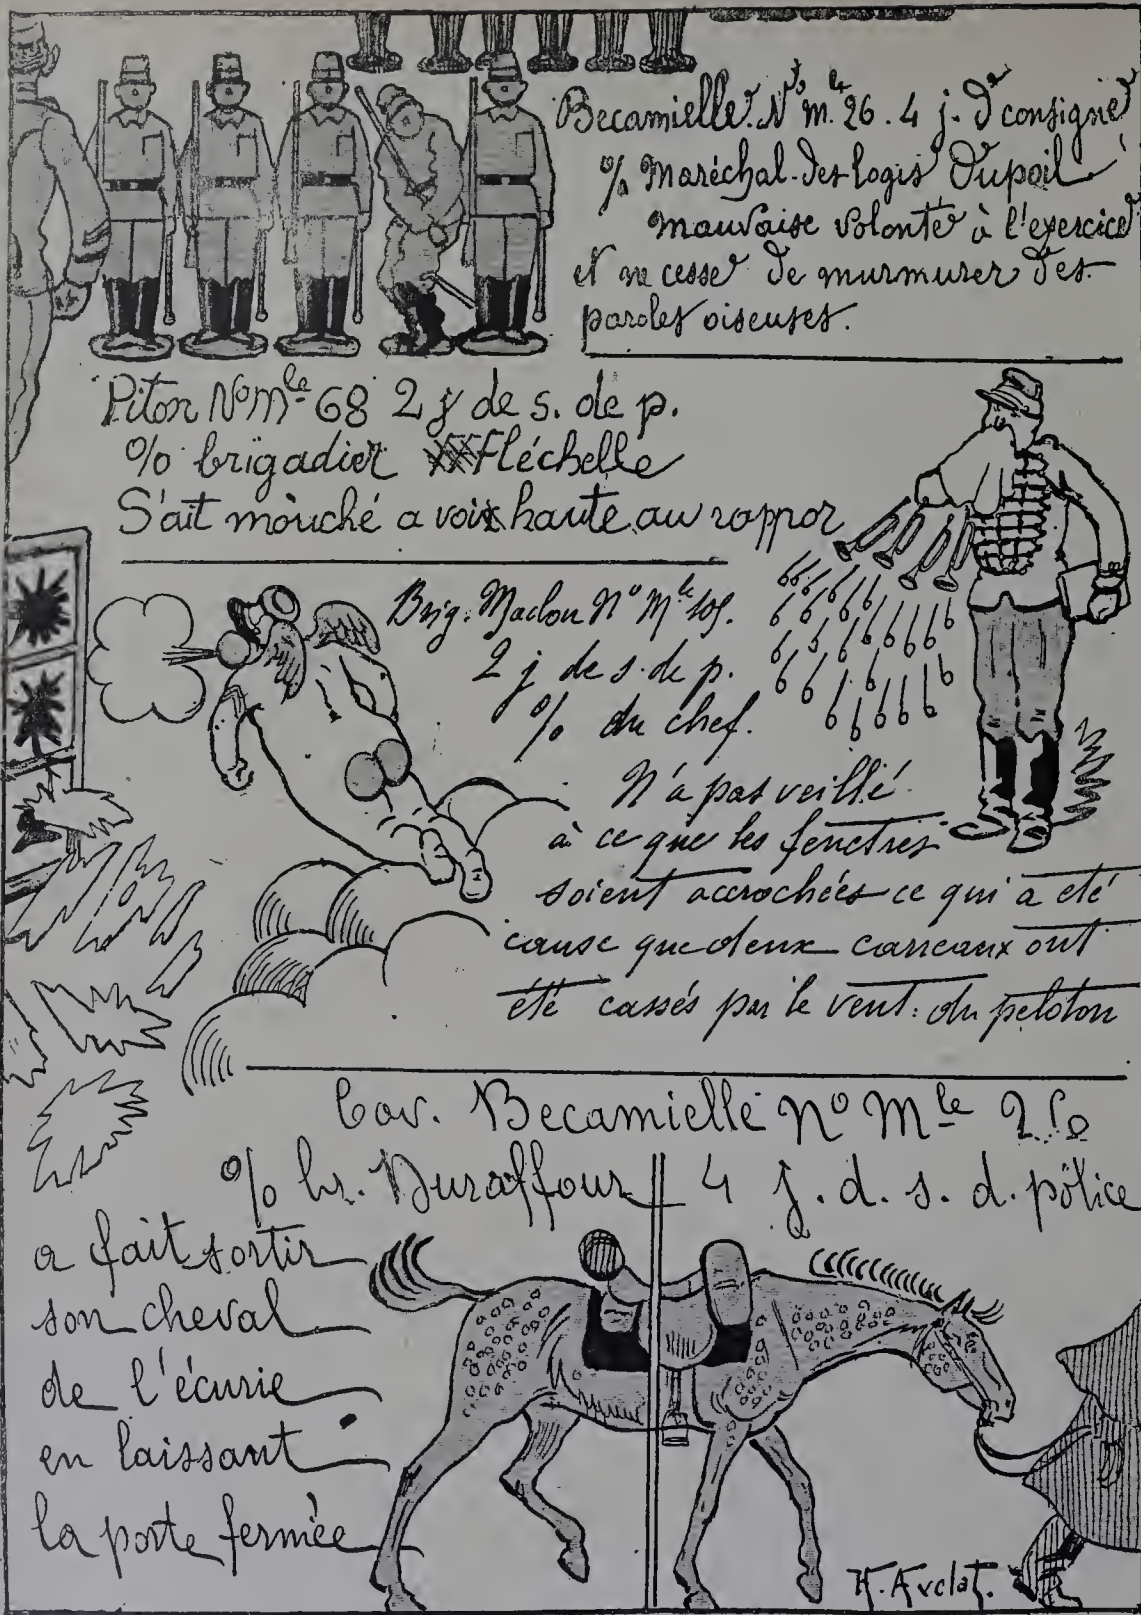 Becamielle. No mle 26. 4 j. de consigne
% Maréchal-des-logis Dupoil
mauvaise volonté à l'exercice
et ne cesse de murmurer des
paroles oiseuses.
Piton No Mle 68 2 j de s. de p.
% brigadier Fléchelle
S'ait mouché a voix haute au rappor
Brig. Maclou No Mle 109.
2 j de s. de p.
% du chef.
N'a pas veillé
à ce que les fenetres
soient accrochées ce qui a été
cause que deux carreaux ont
été cassés par le vent: du peloton
Cav. Becamielle No Mle 26
% br. Duraffour 4 j. d. s. d. police
a fait sortir
son cheval
de l'écurie
en laissant
la porte fermée
H. Avelot.